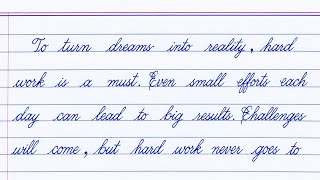 To turn dreams into reality, hard
work is a must. Even small efforts each
day can lead to big results. Challenges
will come, but hard work never goes to